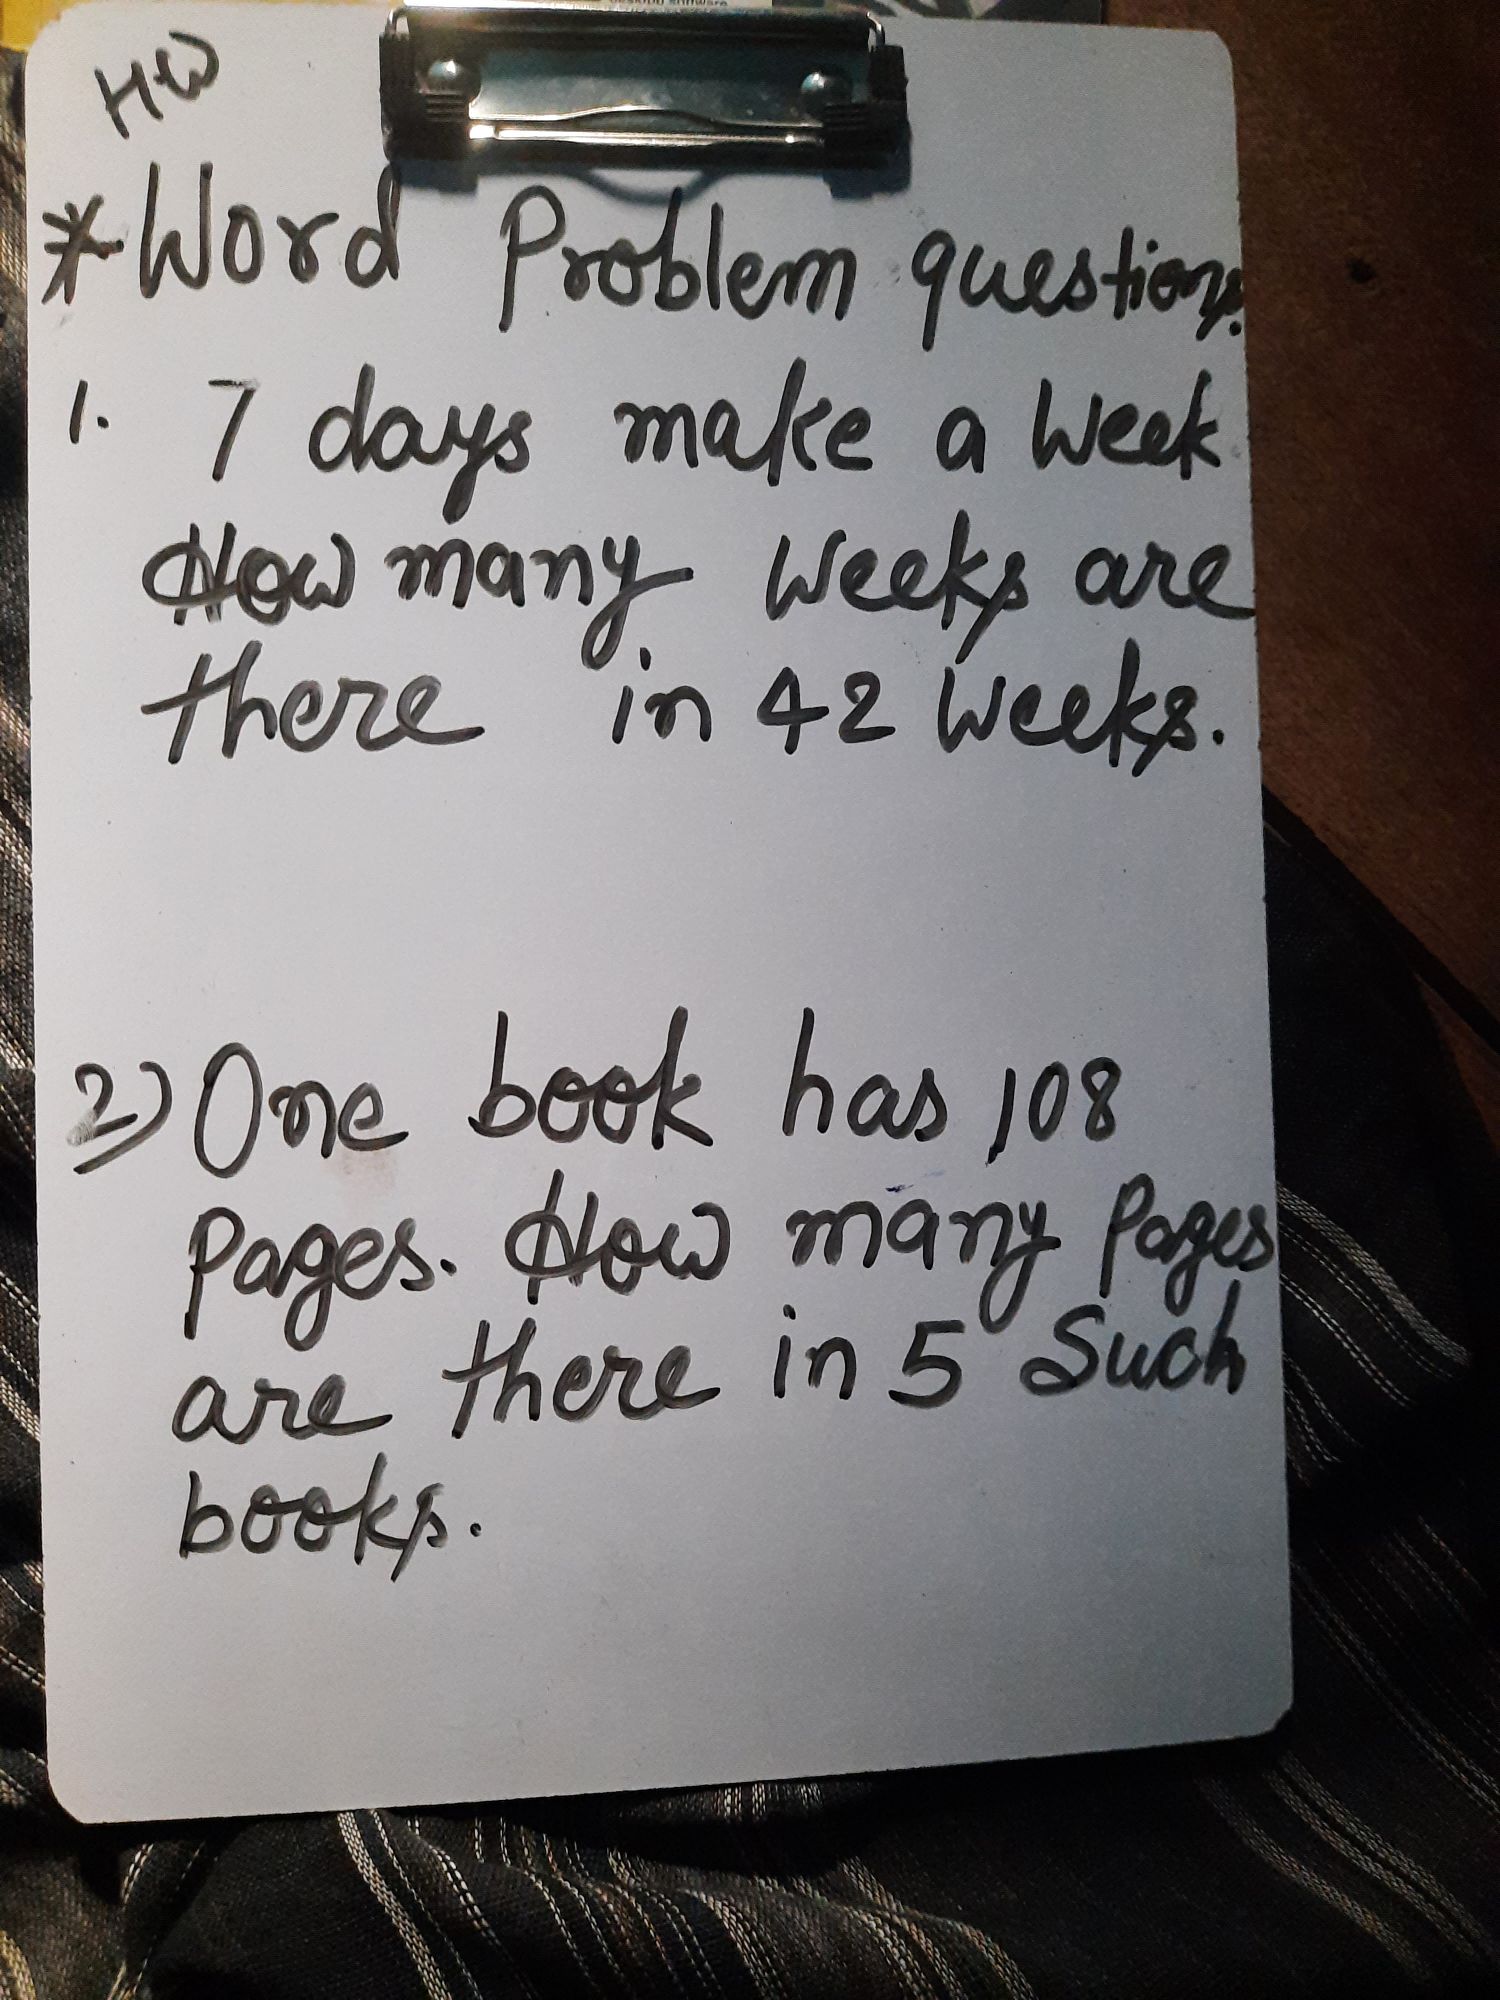 HW
* Word Problem questions.
1. 7 days make a Week
How many Weeks are
there in 42 Weeks.
2) One book has 108
Pages. How many Pages
are there in 5 Such
books.